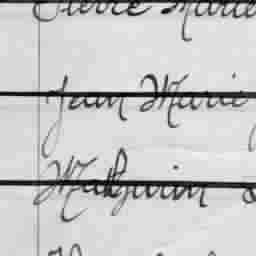 Pierre Marie
Jean Marie
Mathurin